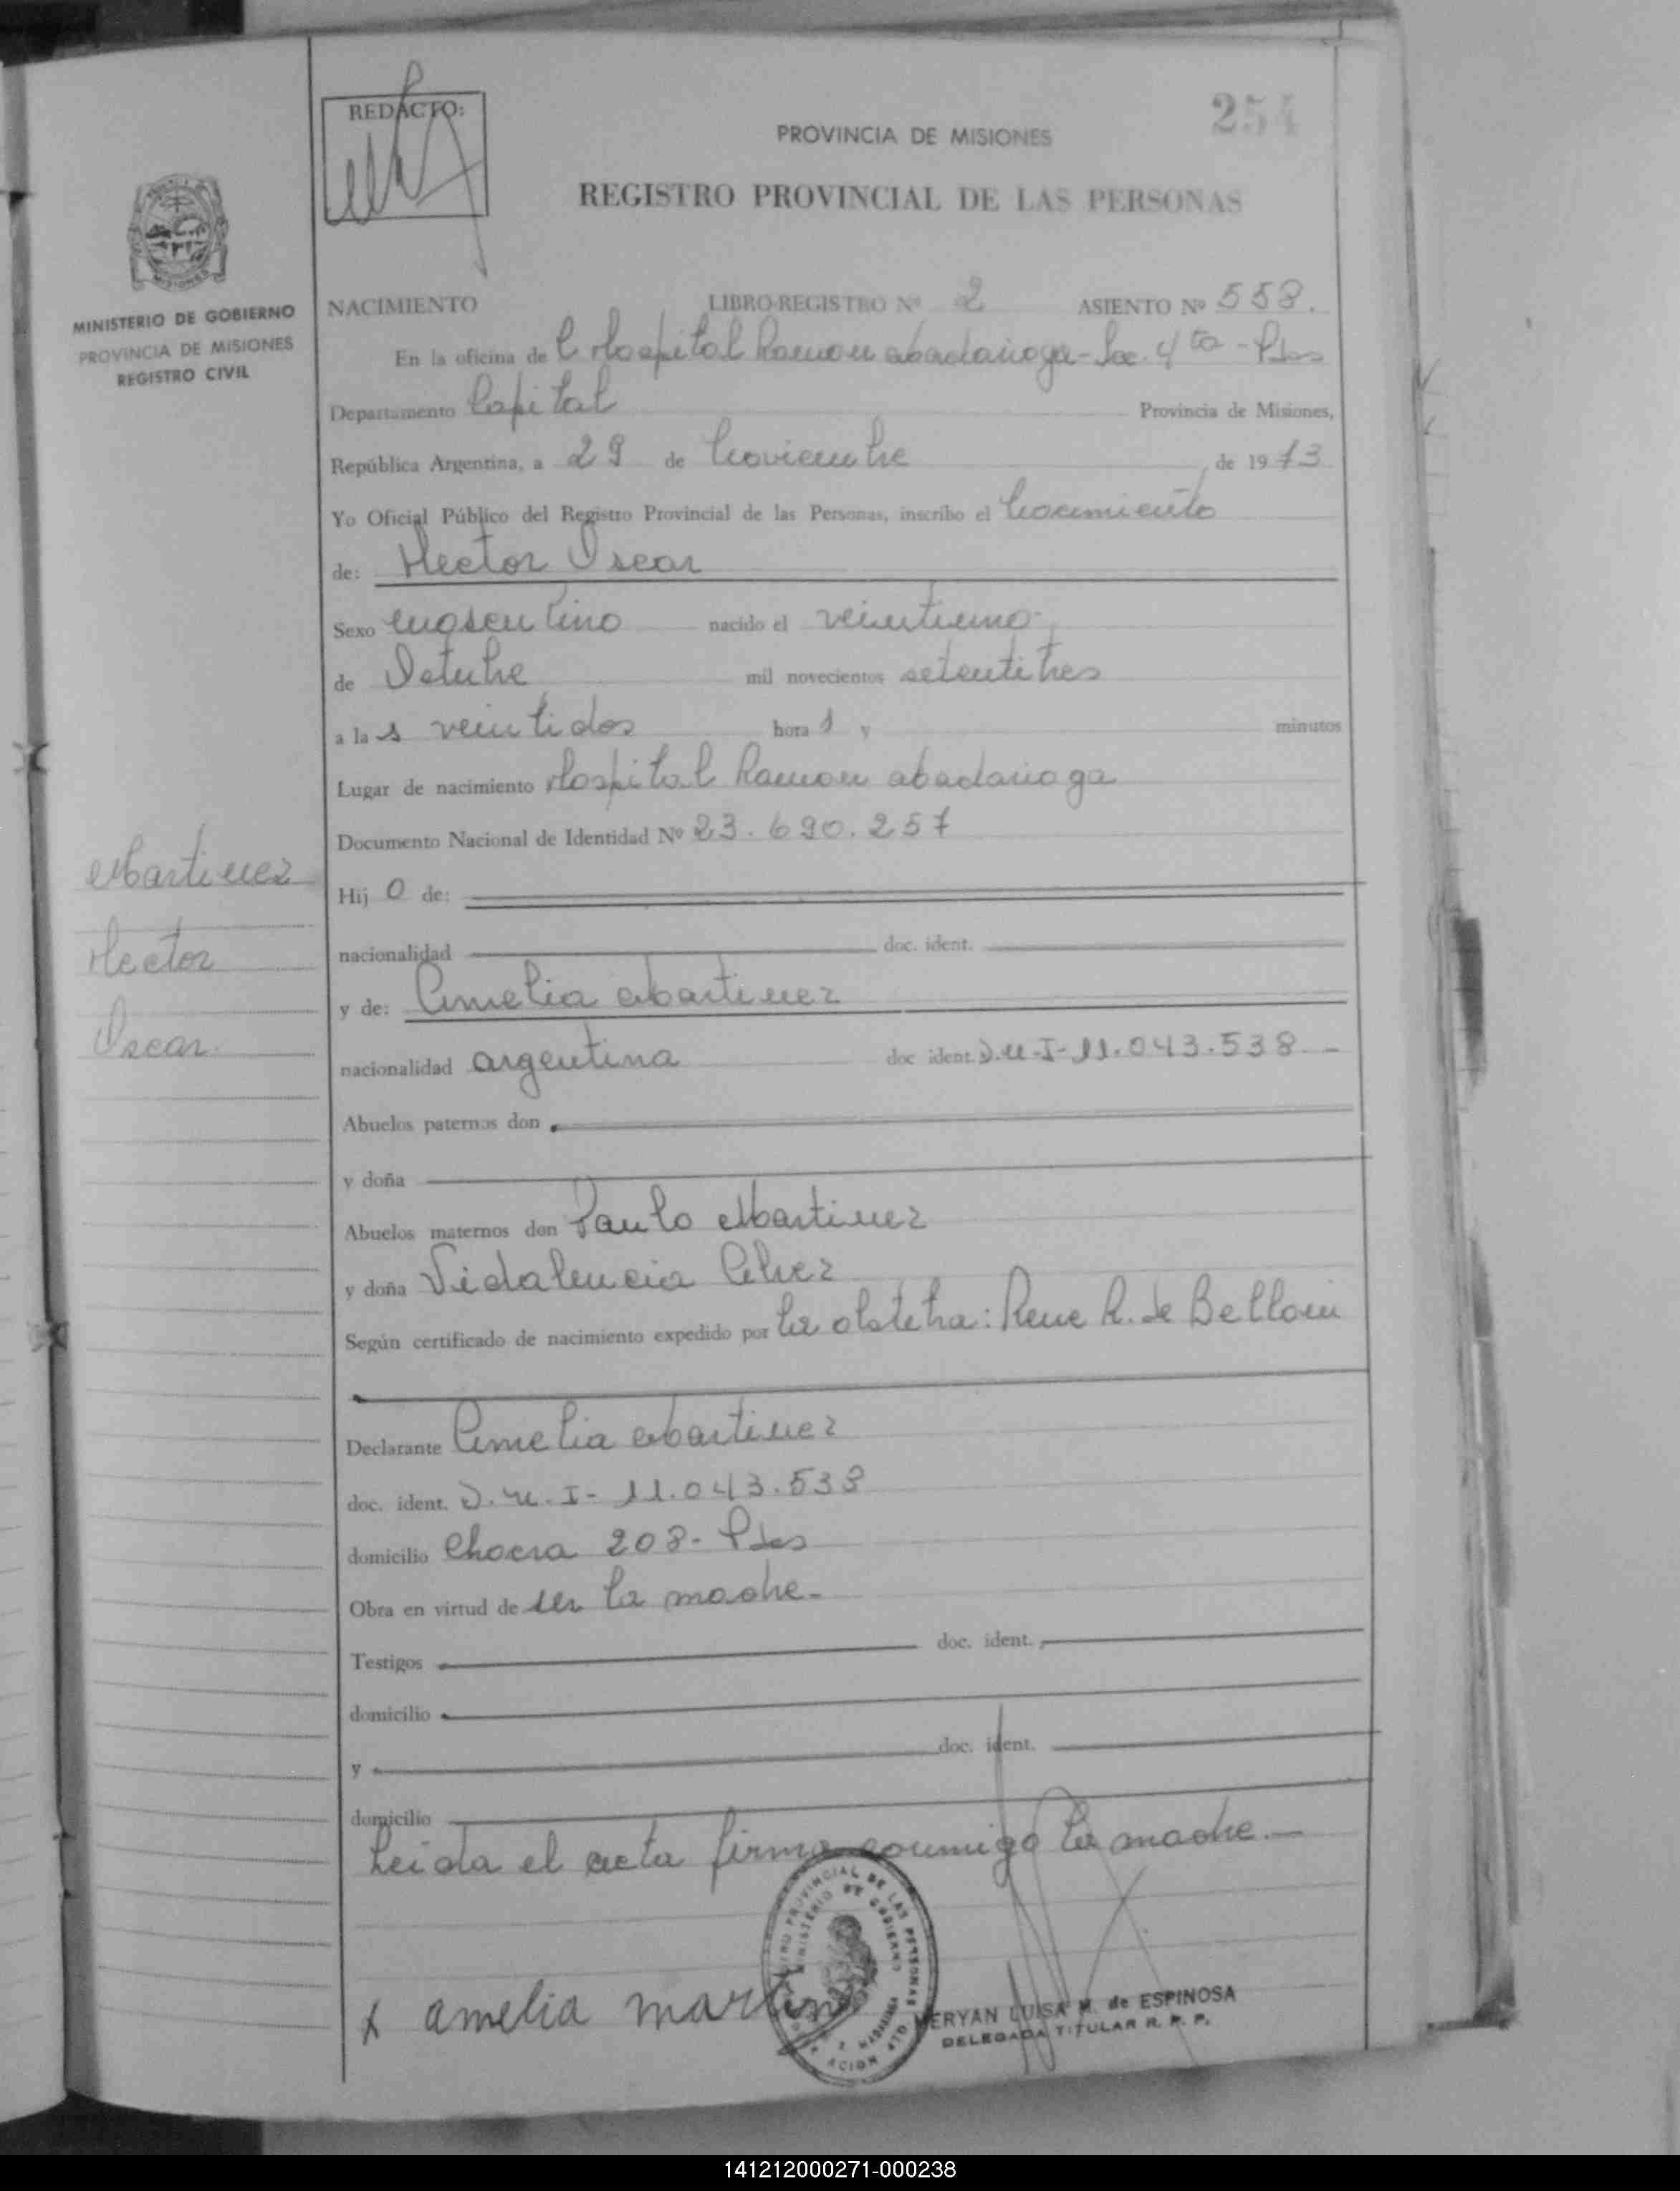 REDACTO:
254
PROVINCIA DE MISIONES
REGISTRO PROVINCIAL DE LAS PERSONAS
MINISTERIO DE GOBIERNO
PROVINCIA DE MISIONES
REGISTRO CIVIL
NACIMIENTO LIBRO-REGISTRO Nº 2 ASIENTO Nº 558.
En la oficina de Hospital Ramon abadarioga - Sec. 4ta - Pdas
Departamento Capital Provincia de Misiones,
República Argentina, a 29 de Noviembre, de 1973
Yo Oficial Público del Registro Provincial de las Personas, inscribo el Nacimiento
de: Hector Oscar
Sexo masculino nacido el veintiuno
de Octubre mil novecientos setentitres
a las veintidos hora s y minutos
Lugar de nacimiento Hospital Ramon abadarioga
Documento Nacional de Identidad Nº 23.690.257
Martinez
Hij o de:
Hector
nacionalidad doc. ident.
y de: Amelia Martinez
Oscar.
nacionalidad argentina doc ident. D.N.I-11.043.538-
Abuelos paternos don
y doña
Abuelos maternos don Paulo Martinez
y doña Vidalencia
Según certificado de nacimiento expedido por la obstetra: Rene R. de
Declarante Amelia Martinez
doc. ident. D.N.I- 11.043.538
domicilio Chacra 208- Pdas
Obra en virtud de ser la madre-
Testigos doc. ident.
domicilio
y doc. ident.
domicilio
Leida el acta firma conmigo la madre.-
x amelia martinez
MERYAN LUISA M. de ESPINOSA
DELEGADA TITULAR R. P. P.
141212000271-000238